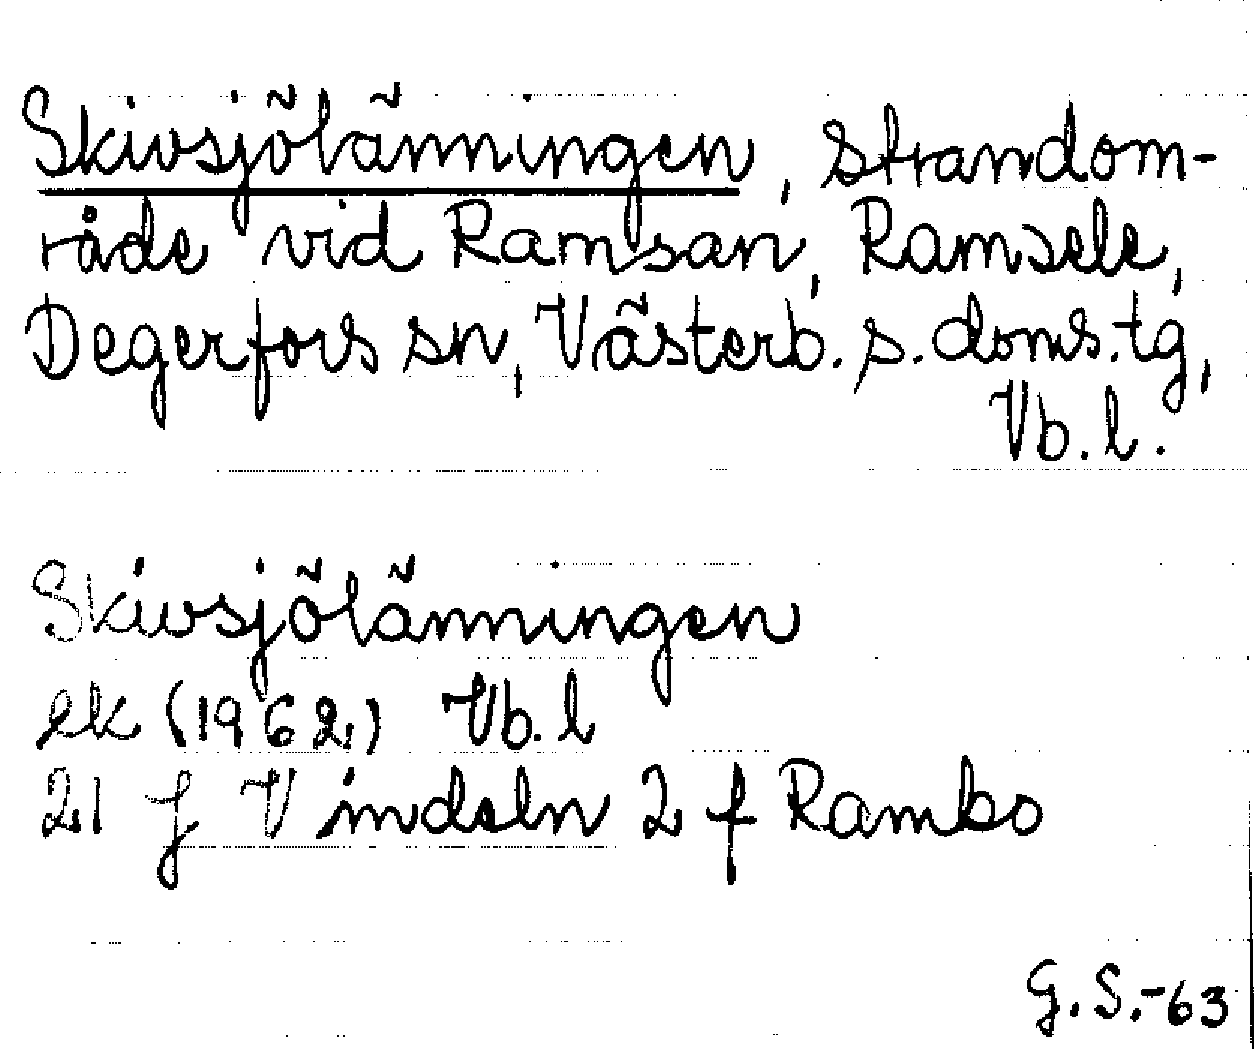 Skivsjölänningen, strandom-
råde vid Ramsan, Ramsele,
Degerfors sn, Västerb. s. doms. tg,
Vb. l.
Skivsjölänningen
ek (1962) Vb. l
21 J Vindeln 2 f Rambo
G. S. -63